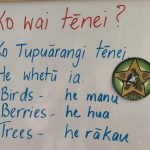 Ko wai tēnei?
Ko Tupuārangi tēnei
He whetū ia.
Birds - he manu
Berries - he hua
Trees - he rākau